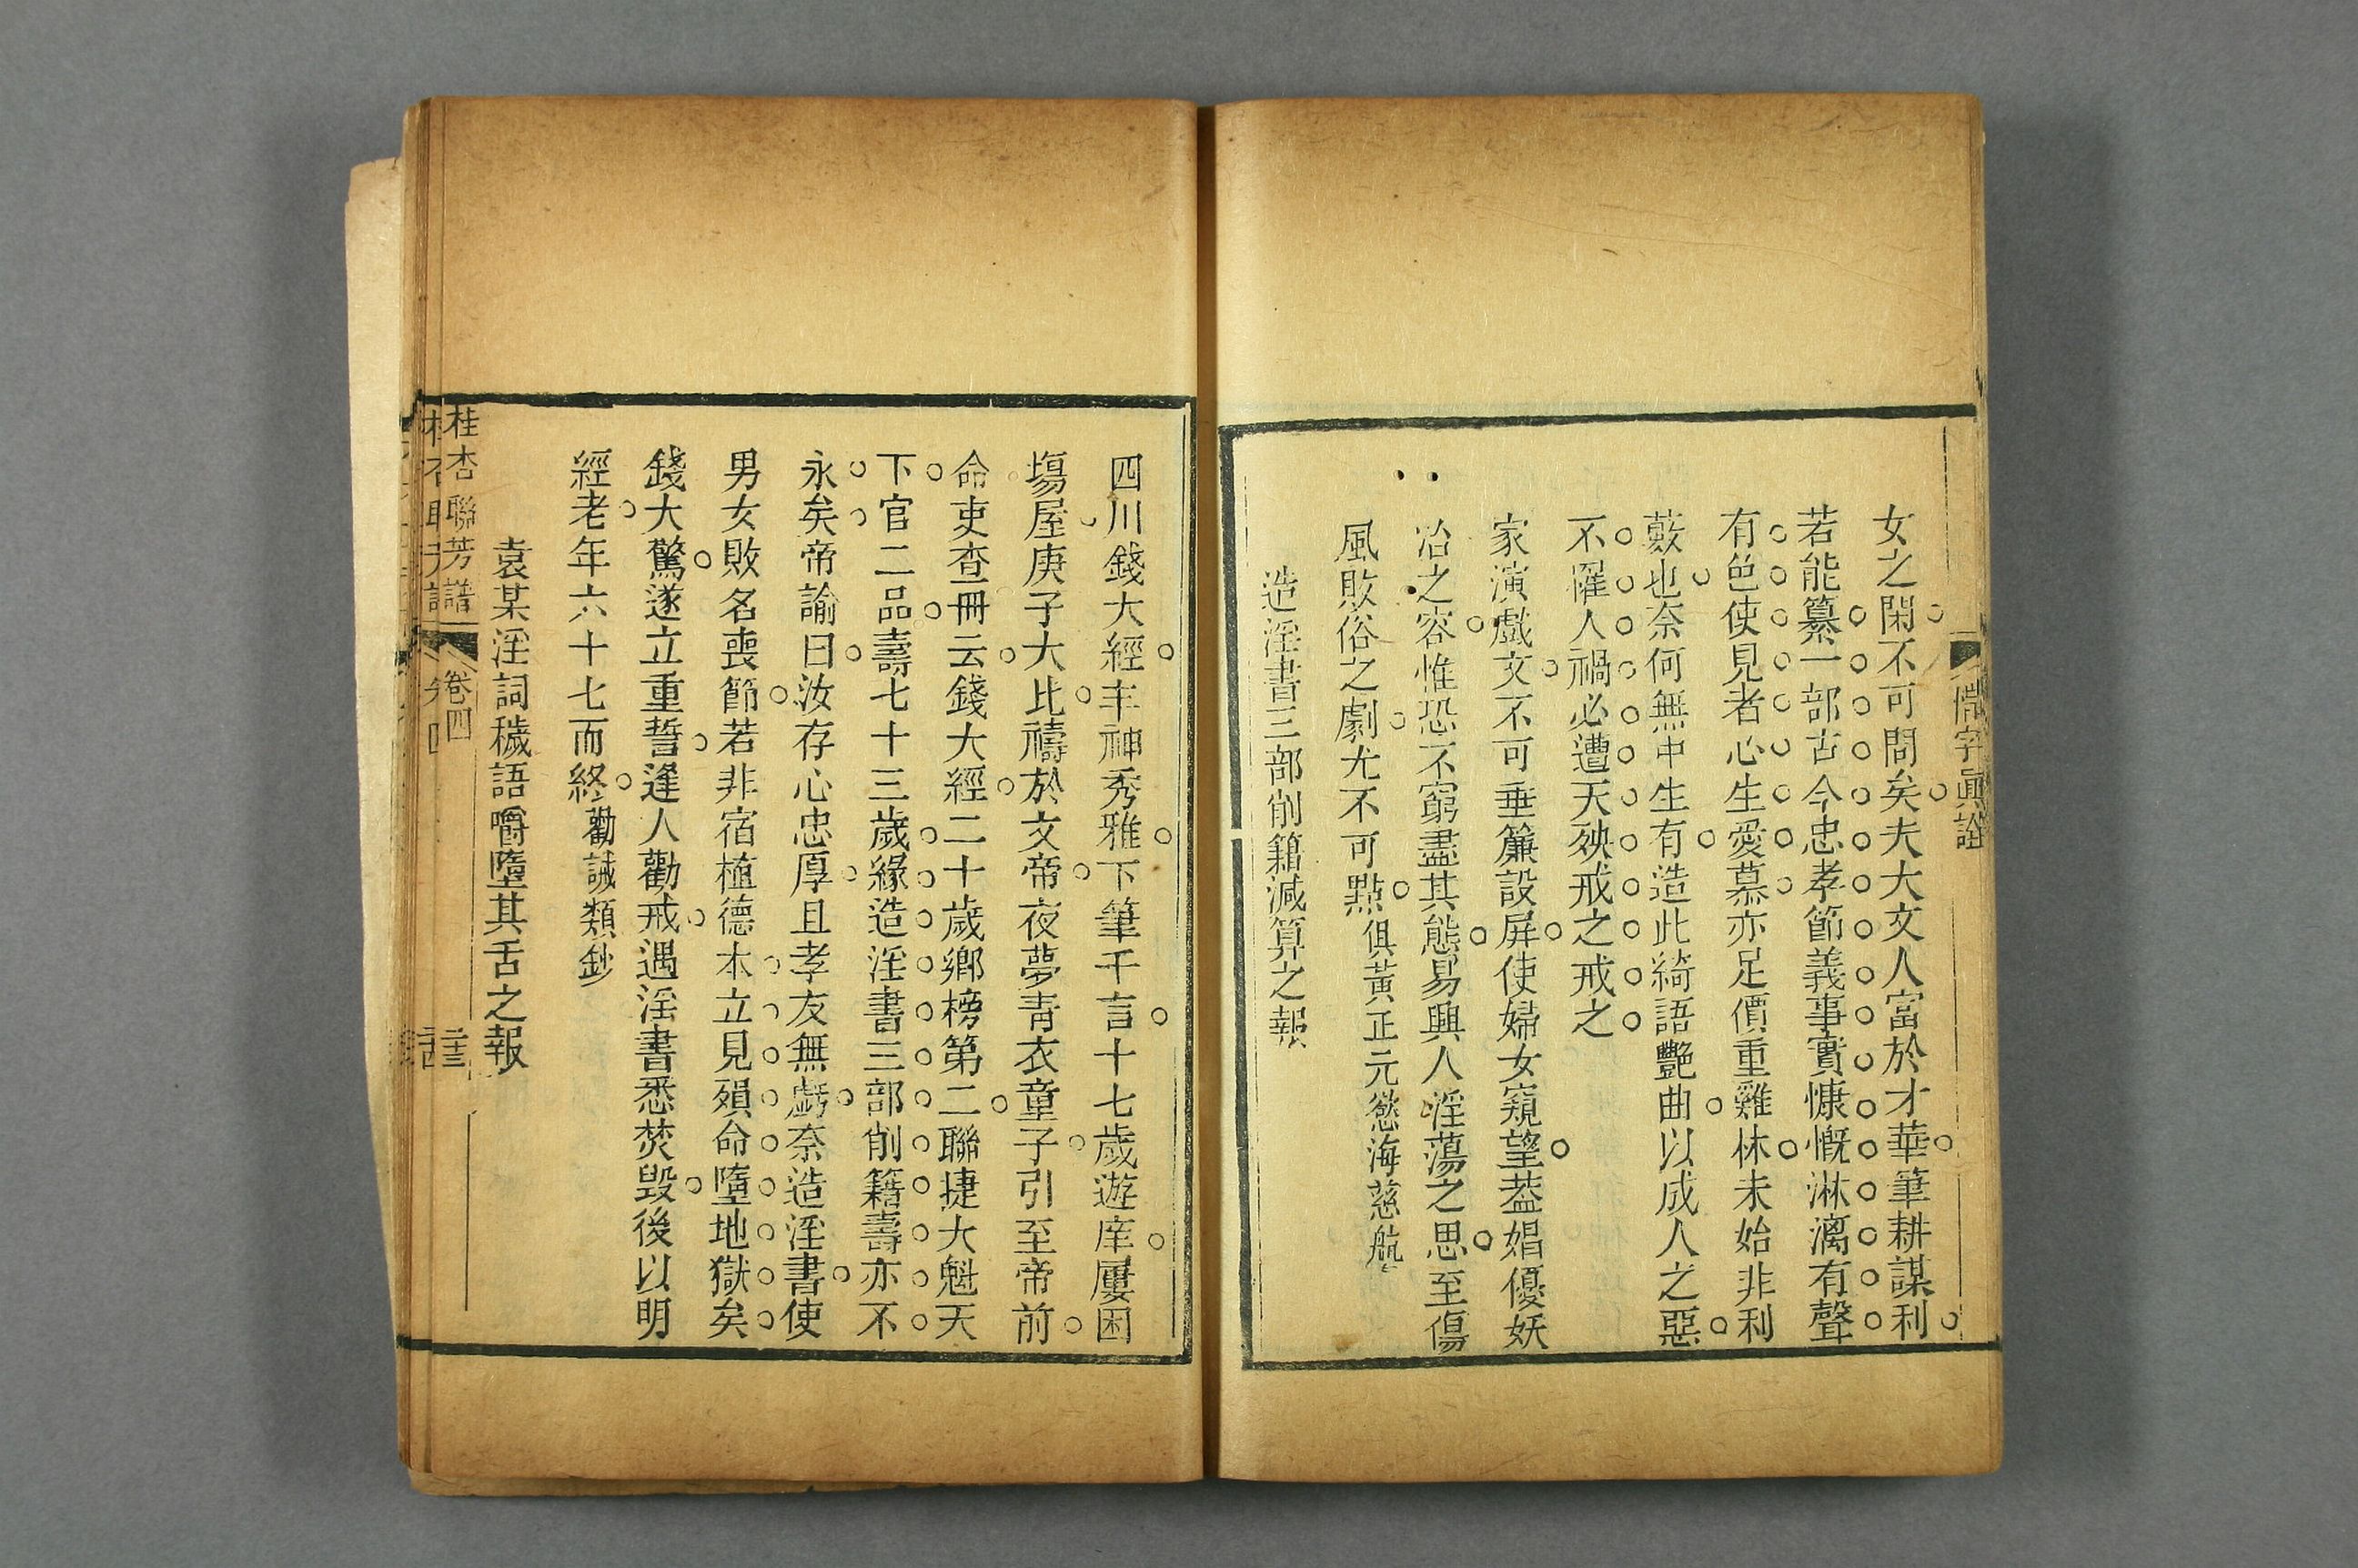 字眞詮
女之閑不可問矣夫大文人富於才華筆耕謀利
若能纂一部古今忠孝節義事實慷慨淋漓有聲
有色使見者心生愛慕亦足價重雞林未始非利
藪也奈何無中生有造此綺語艷曲以成人之惡
不罹人禍必遭天殃戒之戒之
家演戲文不可垂簾設屏使婦女窺望葢娼優妖
冶之容惟恐不窮盡其態易興人淫蕩之思至傷
風敗俗之劇尤不可點俱黃正元慾海慈航
造淫書三部削籍減算之報
四川錢大經丰神秀雅下筆千言十七歲遊庠屢困
塲屋庚子大比禱於文帝夜夢靑衣童子引至帝前
命吏查冊云錢大經二十歲鄕榜第二聯捷大魁天
下官二品壽七十三歲緣造淫書三部削籍壽亦不
永矣帝諭曰汝存心忠厚且孝友無虧奈造淫書使
男女敗名喪節若非宿植德本立見殞命墮地獄矣
錢大驚遂立重誓逢人勸戒遇淫書悉焚毀後以明
經老年六十七而終勸誡類鈔
袁某淫詞穢語嚼墮其舌之報
桂杏聯芳譜 卷四 二十三